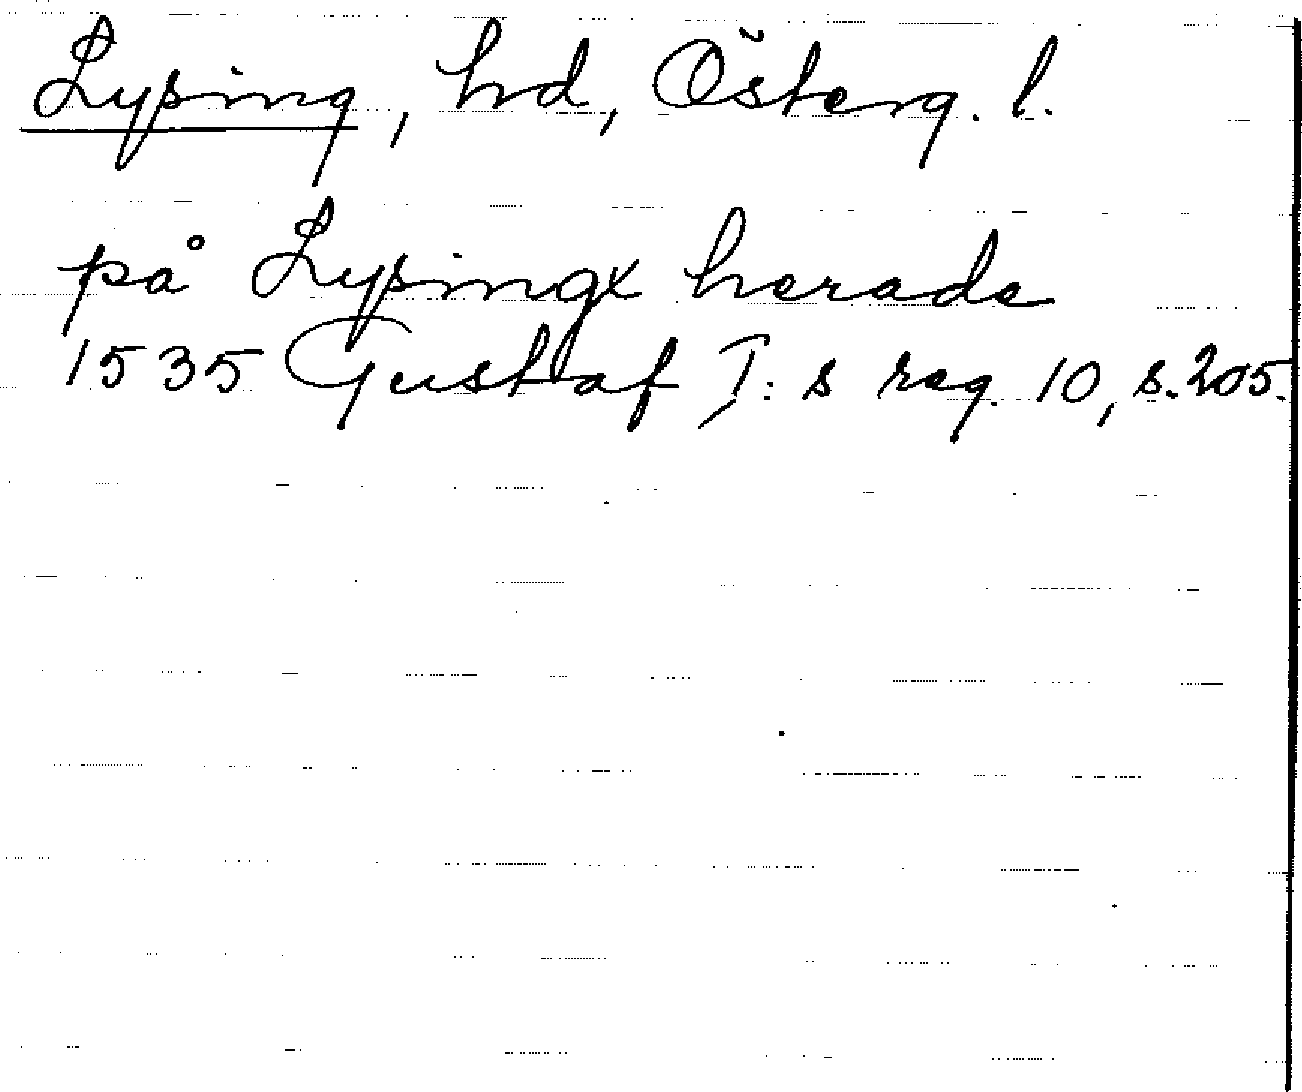 Lysing, hd, Österg. l.
på Lysingx herade
1535 Gustaf I:s reg. 10, s. 205.